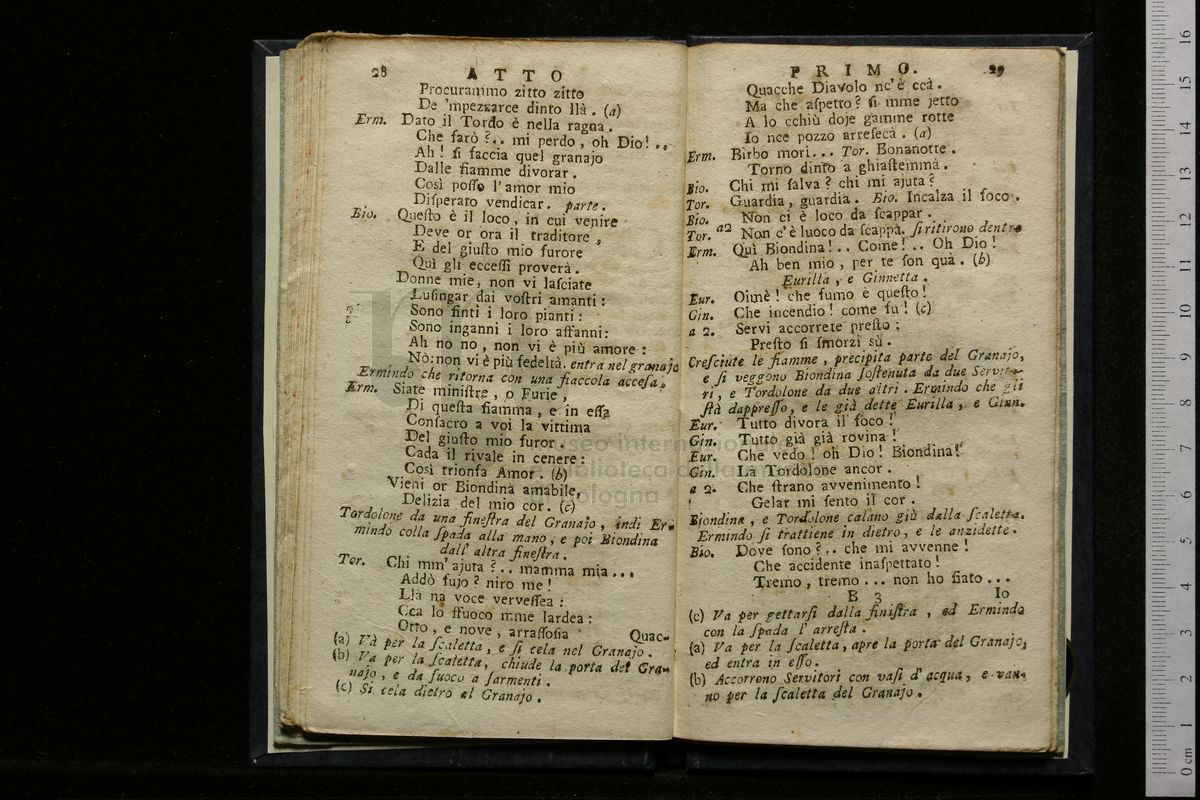 28 ATTO
Procurammo zitto zitto
De 'mpezzarce dinto llà . (a)
Erm. Dato il Tordo è nella ragna .
Che farò ?.. mi perdo , oh Dio! ..
Ah ! ſi faccia quel granajo
Dalle fiamme divorar .
Così poſſo l'amor mio
Diſperato vendicar . parte .
Bio. Queſto è il loco , in cui venire
Deve or ora il traditore ,
E del giuſto mio furore
Quì gli ecceſſi proverà .
Donne mie, non vi laſciate
Luſingar dai voſtri amanti :
Sono finti i loro pianti :
Sono inganni i loro affanni:
Ah no no , non vi è più amore :
Nò: non vi è più fedeltà . entra nel granajo
Ermindo che ritorna con una fiaccola acceſa .
Erm. Siate miniſtre , o Furie ,
Di queſta fiamma , e in eſſa
Conſacro a voi la vittima
Del giuſto mio furor .
Cada il rivale in cenere :
Così trionfa Amor . (b)
Vieni or Biondina amabile,
Delizia del mio cor . (c)
Tordolone da una fineſtra del Granajo , indi Er-
mindo colla ſpada alla mano , e poi Biondina
dall' altra fineſtra .
Tor. Chi mm'ajuta ?.. mamma mia ...
Addò fujo ? niro me !
Llà na voce verveſſea :
Cca lo ffuoco mme lardea :
Otto , e nove , arraſſoſia Quac-
(a) Và per la ſcaletta , e ſi cela nel Granajo .
(b) Va per la ſcaletta, chiude la porta del Gra-
najo , e da fuoco a ſarmenti .
(c) Si cela dietro al Granajo .
PRIMO. 29
Quacche Diavolo nc'è ccà .
Ma che aſpetto ? ſi mme jetto
A lo cchiù doje gamme rotte
Io nce pozzo arreſecà . (a)
Erm. Birbo mori... Tor. Bonanotte .
Torno dinto a ghiaſtemmà .
Bio. Chi mi ſalva ? chi mi ajuta ?
Tor. Guardia , guardia . Bio. Incalza il foco .
Bio. Non ci è loco da ſcappar .
Tor. a2 Non c'è luoco da ſcappà. ſi ritirono dentro
Erm. Quì Biondina !.. Come !.. Oh Dio !
Ah ben mio , per te ſon quà . (b)
Eurilla , e Ginnetta .
Eur. Oimè ! che fumo è queſto !
Gin. Che incendio ! come fu ! (c)
a 2. Servi accorrete preſto :
Preſto ſi ſmorzi sù .
Creſciute le fiamme , precipita parte del Granajo,
e ſi veggono Biondina ſoſtenuta da due Servito-
ri , e Tordolone da due altri . Ermindo che gli
ſtà dappreſſo, e le già dette Eurilla , e Ginn.
Eur. Tutto divora il foco !
Gin. Tutto già già rovina !
Eur. Che vedo ! oh Dio ! Biondina !
Gin. Là Tordolone ancor .
a 2. Che ſtrano avvenimento !
Gelar mi ſento il cor .
Biondina , e Tordolone calano giù dalla ſcaletta.
Ermindo ſi trattiene in dietro , e le anzidette .
Bio. Dove ſono ?.. che mi avvenne !
Che accidente inaſpettato !
Tremo , tremo ... non ho fiato ...
B 3 Io
(c) Va per gettarſi dalla finiſtra , ed Ermindo
con la ſpada l' arreſta .
(a) Va per la ſcaletta, apre la porta del Granajo,
ed entra in eſſo.
(b) Accorrono Servitori con vaſi d'acqua , e van-
no per la ſcaletta del Granajo .